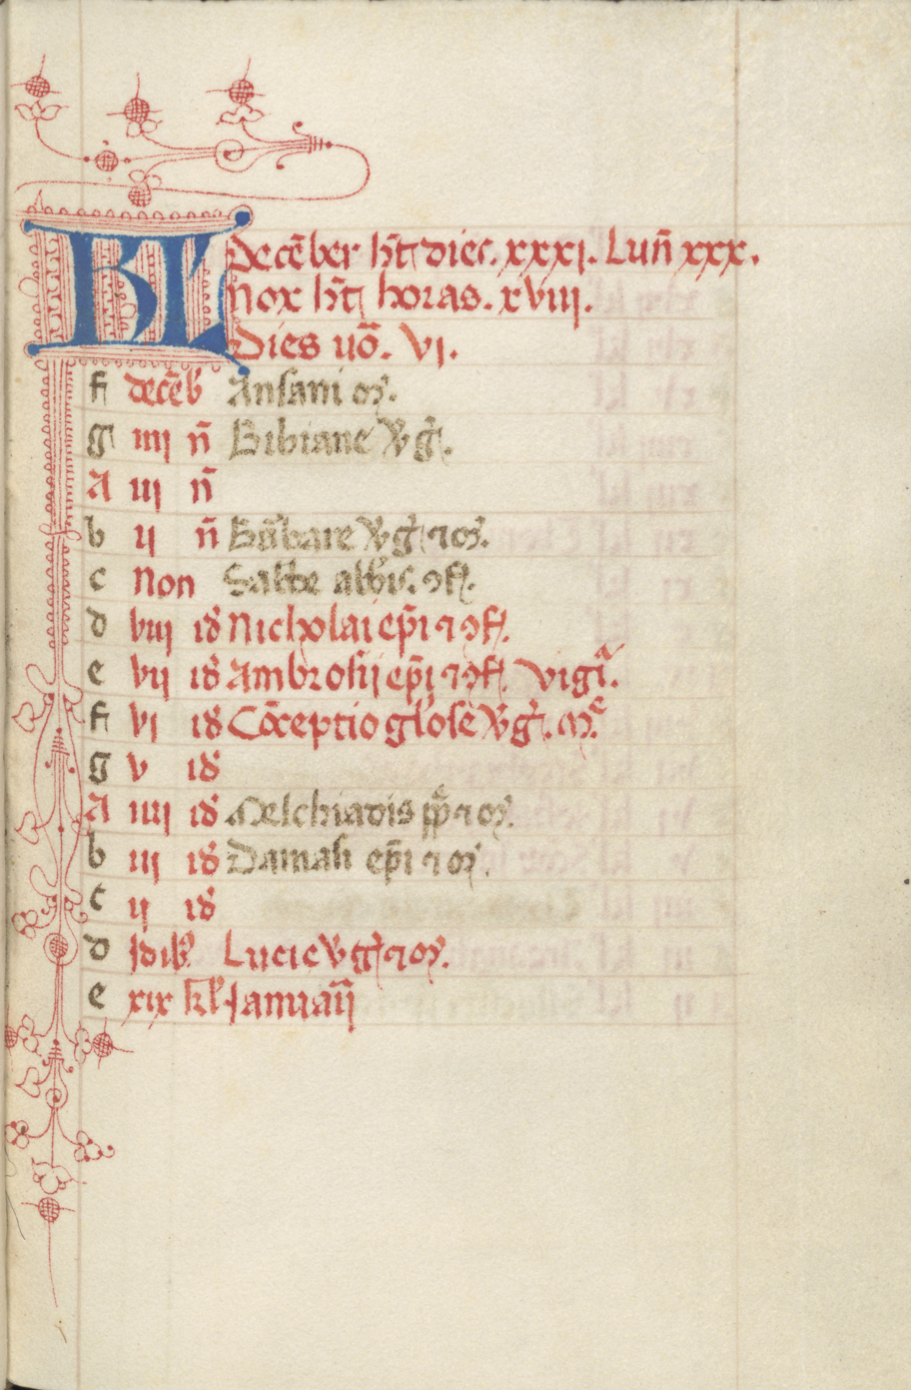 KL Decēber hꝫ dies. xxxj. Luñ xxx.
Nox hꝫ horas. xviij.
Dies uō. vj.
f decēb Ansani mꝛ.
g iiij ñ Bibiane v̄gĩs.
A iij ñ
b ij ñ Barbare v̄gĩs ⁊ mꝛ.
c Non Sabbe abbis. ꝯf.
d viij id Nicholai ep̄i ⁊ ꝯf.
e vij id Ambrosij ep̄i ⁊ ꝯf. vigiᵃ.
f vj id Cōceptio gl'ose v̄gĩs. mᵉ.
g v id
A iiij id Melchiadis pp̄ ⁊ mꝛ.
b iij id Damasi ep̄i ⁊ mꝛ.
c ij id
d Idib' Lucie v̄gĩs ⁊ mꝛ.
e xix kl' Januarij